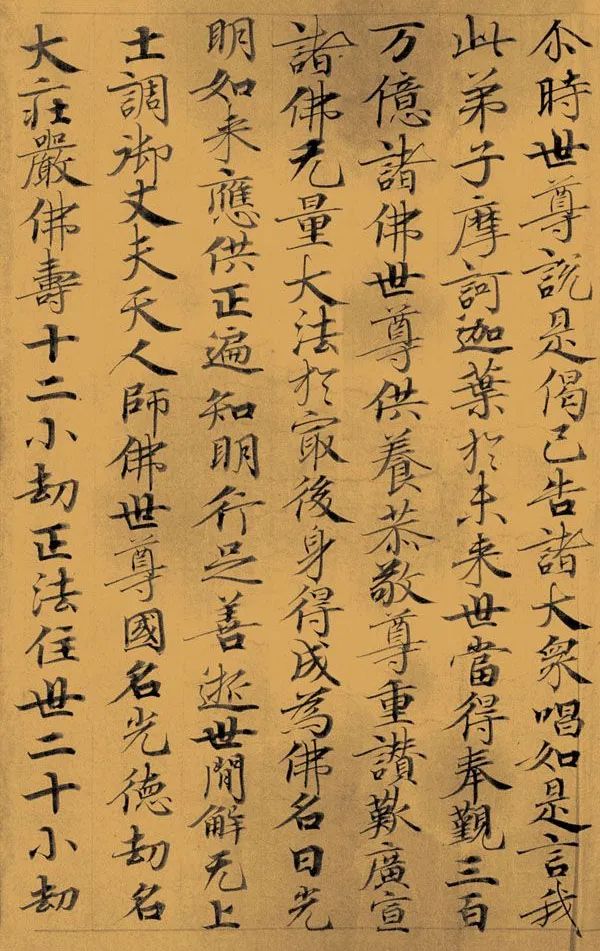 尒時世尊說是偈已告諸大衆唱如是言我
此弟子摩訶迦葉於未来世當得奉覲三百
万億諸佛世尊供養恭敬尊重讃歎廣宣
諸佛无量大法於冣後身得成為佛名曰光
明如来應供正遍知明行足善逝世間解无上
士調御丈夫天人師佛世尊國名光徳劫名
大莊嚴佛壽十二小劫正法住世二十小劫